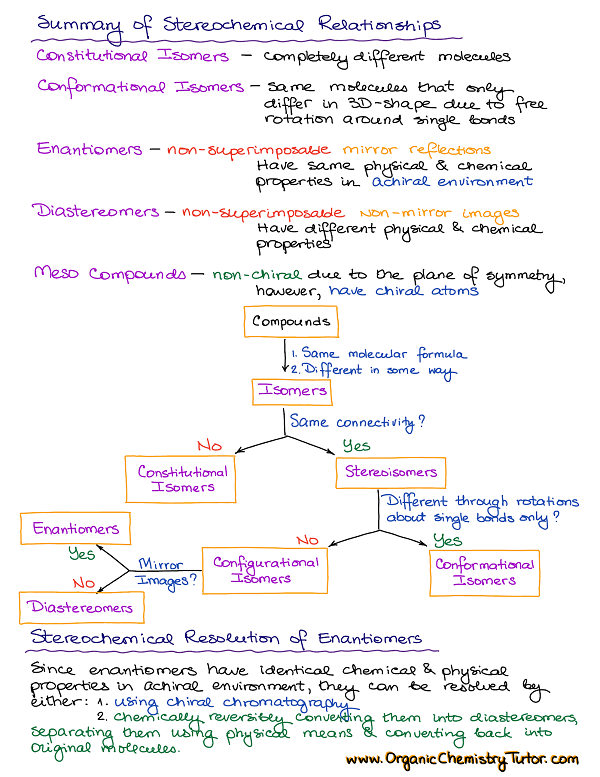 Summary of Stereochemical Relationships
Constitutional Isomers – completely different molecules
Conformational Isomers – same molecules that only
differ in 3D-shape due to free
rotation around single bonds
Enantiomers – non-superimposable mirror reflections
Have same physical & chemical
properties in achiral environment
Diastereomers – non-superimposable non-mirror images
Have different physical & chemical
properties
Meso Compounds – non-chiral due to the plane of symmetry,
however, have chiral atoms
Compounds
1. Same molecular formula
2. Different in some way
Isomers
Same connectivity?
No
Yes
Constitutional
Isomers
Stereoisomers
Different through rotations
about single bonds only?
No
Yes
Configurational
Isomers
Conformational
Isomers
Mirror
Images?
Yes
Enantiomers
No
Diastereomers
Stereochemical Resolution of Enantiomers
Since enantiomers have identical chemical & physical
properties in achiral environment, they can be resolved by
either: 1. using chiral chromatography
2. chemically reversibly converting them into diastereomers,
separating them using physical means & converting back into
original molecules.
www.OrganicChemistryTutor.com